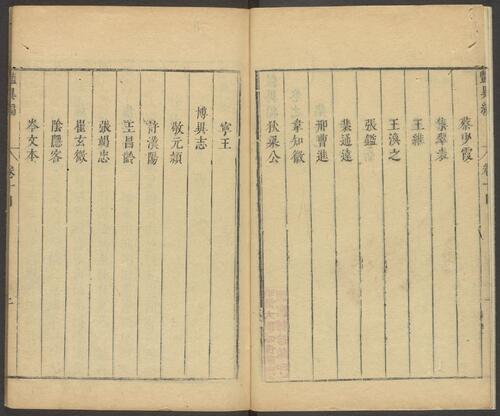 蔡少霞
集翠裘
王維
王渙之
張鑑
葉通遠
邢曹進
韋知微
狄梁公
寧王
博異志
敬元穎
許漢陽
王昌齡
張竭忠
崔玄微
陰隱客
岑文本
豔異編
卷十四